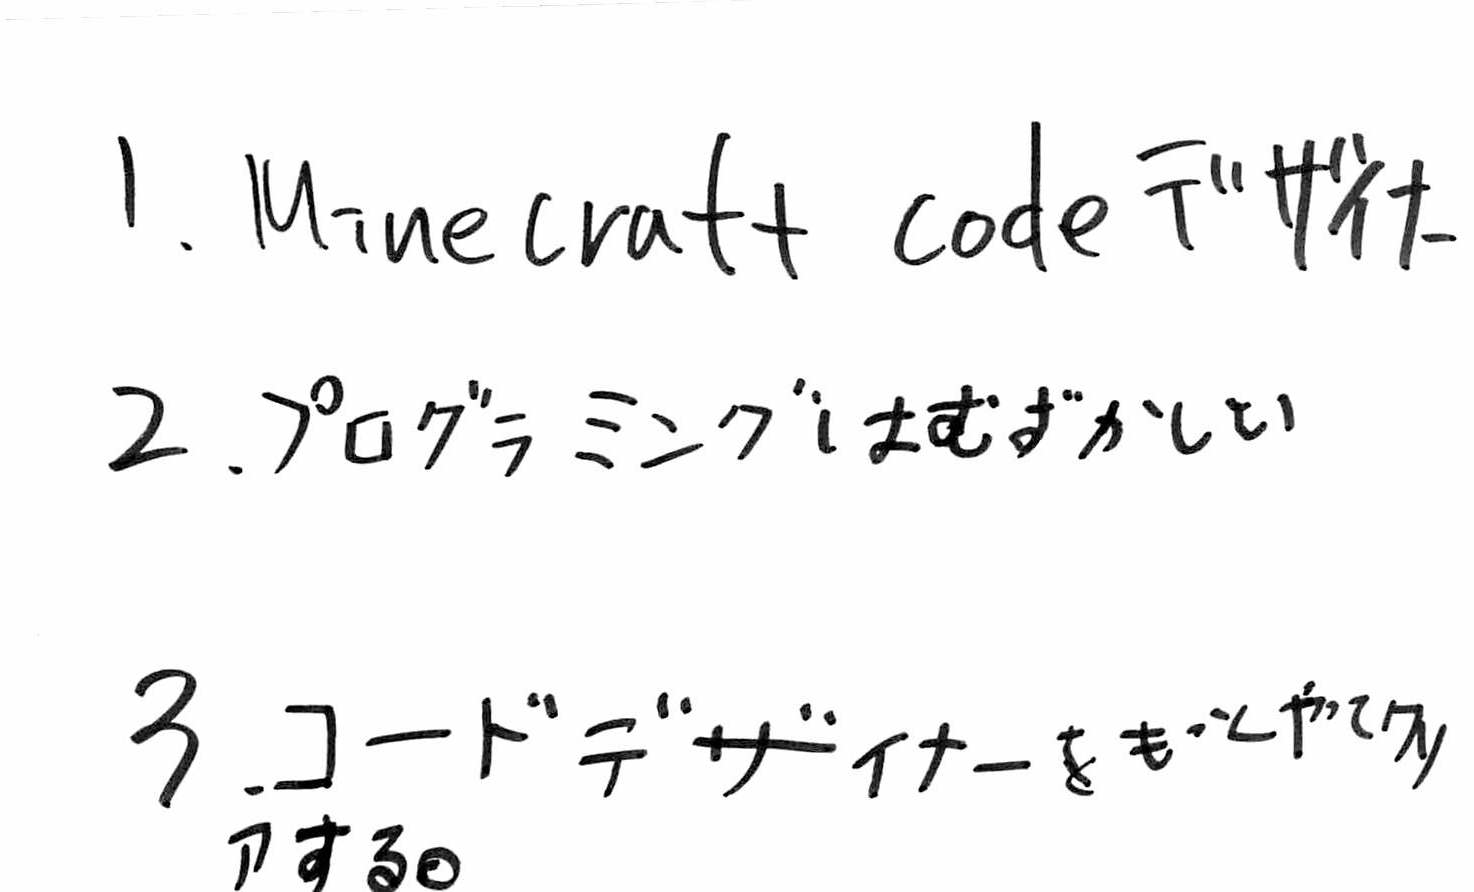 1. Minecraft codeデザイナー
2.プログラミングはむずかしい
3.コードデザイナーをもっとやってクリ
アする。